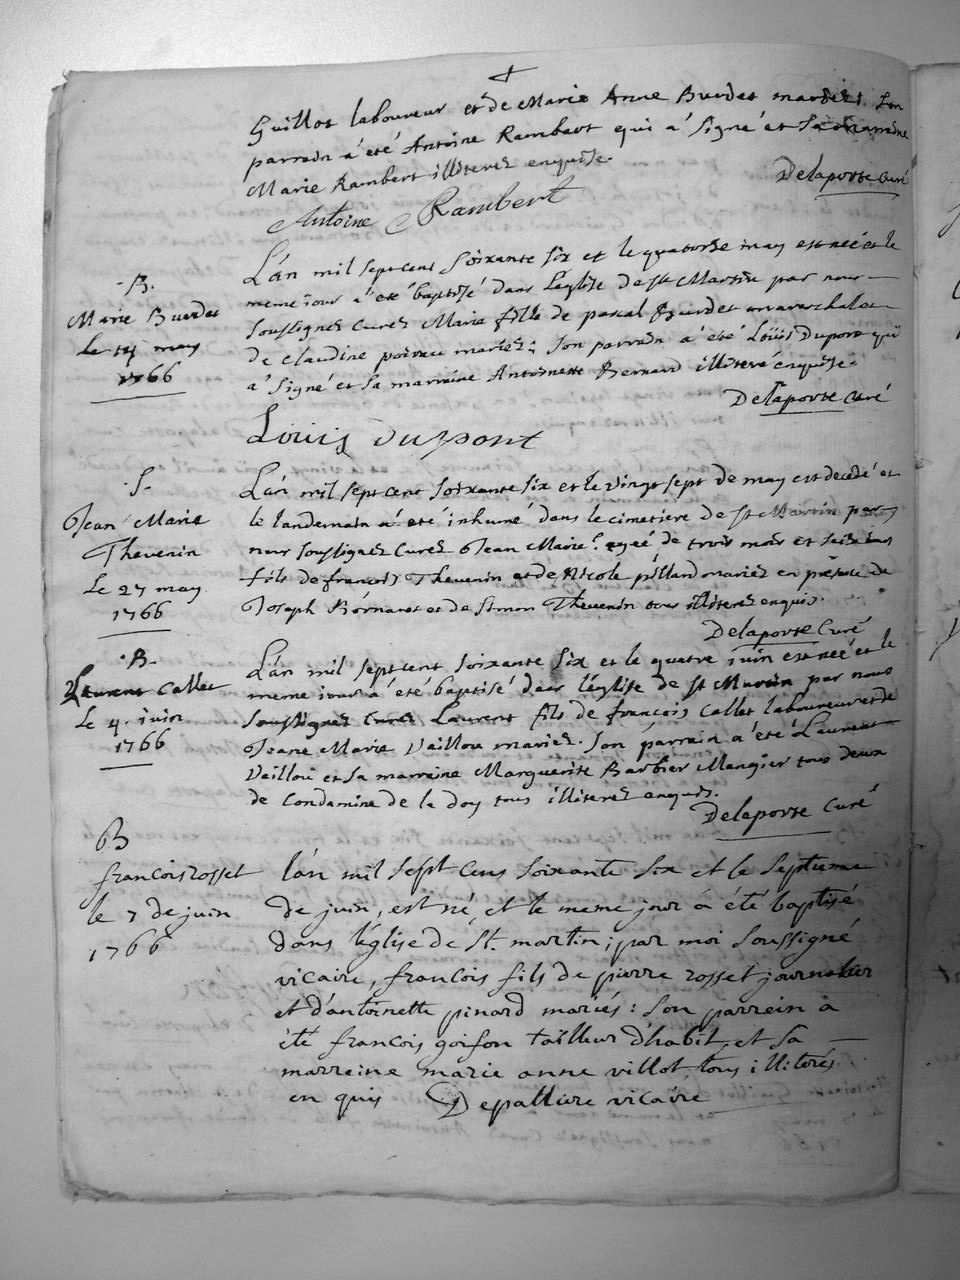 Guillot laboureur et de Marie Anne Burdet mariés. Son
parrain a été Antoine Rambert qui a signé et sa marraine
Marie Rambert illiterez enquise.
Delaporte Curé
Antoine Rambert
B.
Marie Burdet
le 14 may
1766
L'an mil sept cent soixante six et le quatorze may est née et le
meme iour a été baptisé dans l'eglise de St Martin par nous
soussignez curez Marie fille de pascal Burdet marechal et
de claudine poireau mariez; son parrain a été Loüis Dupont qui
a signé et sa marraine Antoinette Bernard illiteré enquise.
Delaporte Curé
Louis dupont
S.
Jean Marie
Thevenin
Le 27 may
1766
L'an mil sept cent soixante six et le vingt sept de may est decedé et
le landemain a été inhumé dans le cimetiere de St Martin par
nous soussignez curez Jean Marie agé de trois mois et
fils de francois Thevenin et de Nicole pilland mariez en presence de
Joseph Bornaret et de Simon Thevenin tous illiterez enquis.
Delaporte Curé
B.
Laurent Callet
Le 4 iuin
1766
L'an mil sept cent soixante six et le quatre iuin est née et le
meme iour a été baptisé dans l'église de St Martin par nous
soussignez curez Laurent fils de françois Callet laboureur et de
Jeane Marie Vaillou mariez. Son parrain a été Laurent
Vaillou et sa marraine Marguerite Barbier Mangier tous deux
de Condamine de la doy tous illiterez enquis.
Delaporte Curé
B
francois rosset
le 7 de juin
1766
l'an mil sept cens soixante six et le septieme
de juin, est né, et le meme jour a été baptisé
dans l'église de St. martin; par moi soussigné
vicaire, francois fils de pierre rosset journalier
et d'antoinette pinard mariés: son parrein a
été francois goifon tailleur d'habit, et sa
marreine marie anne villot tous illiterés
en quis Depallire vicaire